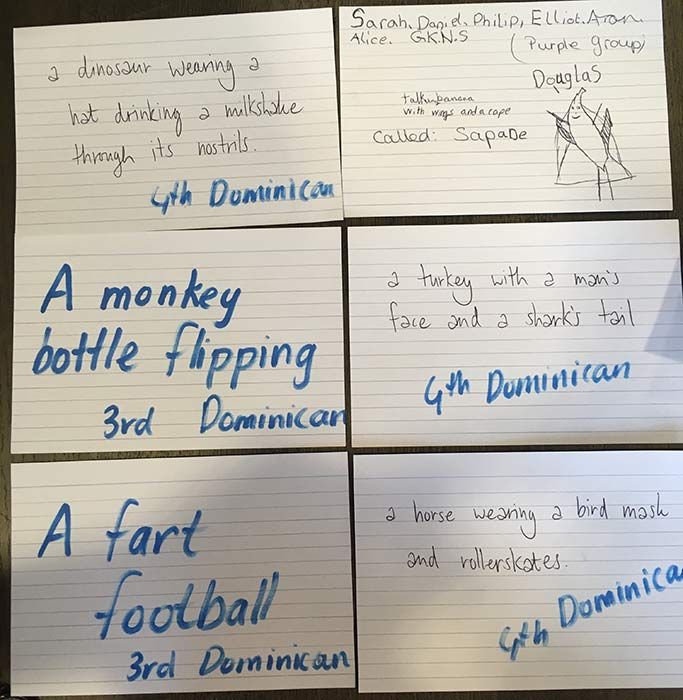 a dinosaur wearing a
hat drinking a milkshake
through its nostrils.
4th Dominican
Sarah, Daniel, Philip, Elliot. Aran.
Alice. G.K.N.S
(Purple group)
Douglas
talking banana
with wings and a cape
Called: SapaDe
A monkey
bottle flipping
3rd Dominican
a turkey with a man's
face and a shark's tail
4th Dominican
A fart
football
3rd Dominican
a horse wearing a bird mask
and rollerskates.
4th Dominican